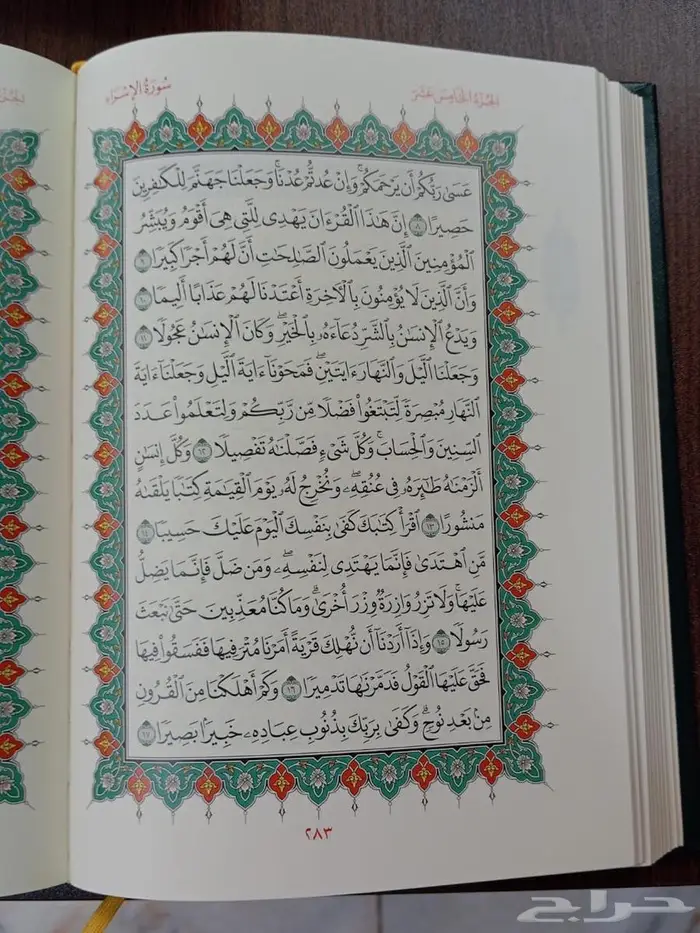 سُورَةُ الإِسْرَاءِ
الجُزْءُ الخَامِسَ عَشَرَ
عَسَىٰ رَبُّكُمْ أَن يَرْحَمَكُمْ ۚ وَإِنْ عُدتُّمْ عُدْنَا ۘ وَجَعَلْنَا جَهَنَّمَ لِلْكَٰفِرِينَ
حَصِيرًا ٨ إِنَّ هَٰذَا الْقُرْءَانَ يَهْدِى لِلَّتِى هِىَ أَقْوَمُ وَيُبَشِّرُ
الْمُؤْمِنِينَ الَّذِينَ يَعْمَلُونَ الصَّٰلِحَٰتِ أَنَّ لَهُمْ أَجْرًا كَبِيرًا ٩
وَأَنَّ الَّذِينَ لَا يُؤْمِنُونَ بِالْءَاخِرَةِ أَعْتَدْنَا لَهُمْ عَذَابًا أَلِيمًا ١٠
وَيَدْعُ الْإِنسَٰنُ بِالشَّرِّ دُعَاءَهُۥ بِالْخَيْرِ ۖ وَكَانَ الْإِنسَٰنُ عَجُولًا ١١
وَجَعَلْنَا الَّيْلَ وَالنَّهَارَ ءَايَتَيْنِ ۖ فَمَحَوْنَا ءَايَةَ الَّيْلِ وَجَعَلْنَا ءَايَةَ
النَّهَارِ مُبْصِرَةً لِّتَبْتَغُوا۟ فَضْلًا مِّن رَّبِّكُمْ وَلِتَعْلَمُوا۟ عَدَدَ
السِّنِينَ وَالْحِسَابَ ۚ وَكُلَّ شَىْءٍ فَصَّلْنَٰهُ تَفْصِيلًا ١٢ وَكُلَّ إِنسَٰنٍ
أَلْزَمْنَٰهُ طَٰئِرَهُۥ فِى عُنُقِهِۦ ۖ وَنُخْرِجُ لَهُۥ يَوْمَ الْقِيَٰمَةِ كِتَٰبًا يَلْقَىٰهُ
مَنشُورًا ١٣ اقْرَأْ كِتَٰبَكَ كَفَىٰ بِنَفْسِكَ الْيَوْمَ عَلَيْكَ حَسِيبًا ١٤
مَّنِ اهْتَدَىٰ فَإِنَّمَا يَهْتَدِى لِنَفْسِهِۦ ۖ وَمَن ضَلَّ فَإِنَّمَا يَضِلُّ
عَلَيْهَا ۚ وَلَا تَزِرُ وَازِرَةٌ وِزْرَ أُخْرَىٰ ۗ وَمَا كُنَّا مُعَذِّبِينَ حَتَّىٰ نَبْعَثَ
رَسُولًا ١٥ وَإِذَا أَرَدْنَا أَن نُّهْلِكَ قَرْيَةً أَمَرْنَا مُتْرَفِيهَا فَفَسَقُوا۟ فِيهَا
فَحَقَّ عَلَيْهَا الْقَوْلُ فَدَمَّرْنَٰهَا تَدْمِيرًا ١٦ وَكَمْ أَهْلَكْنَا مِنَ الْقُرُونِ
مِنۢ بَعْدِ نُوحٍ ۗ وَكَفَىٰ بِرَبِّكَ بِذُنُوبِ عِبَادِهِۦ خَبِيرًۢا بَصِيرًا ١٧
٢٨٣
حراج